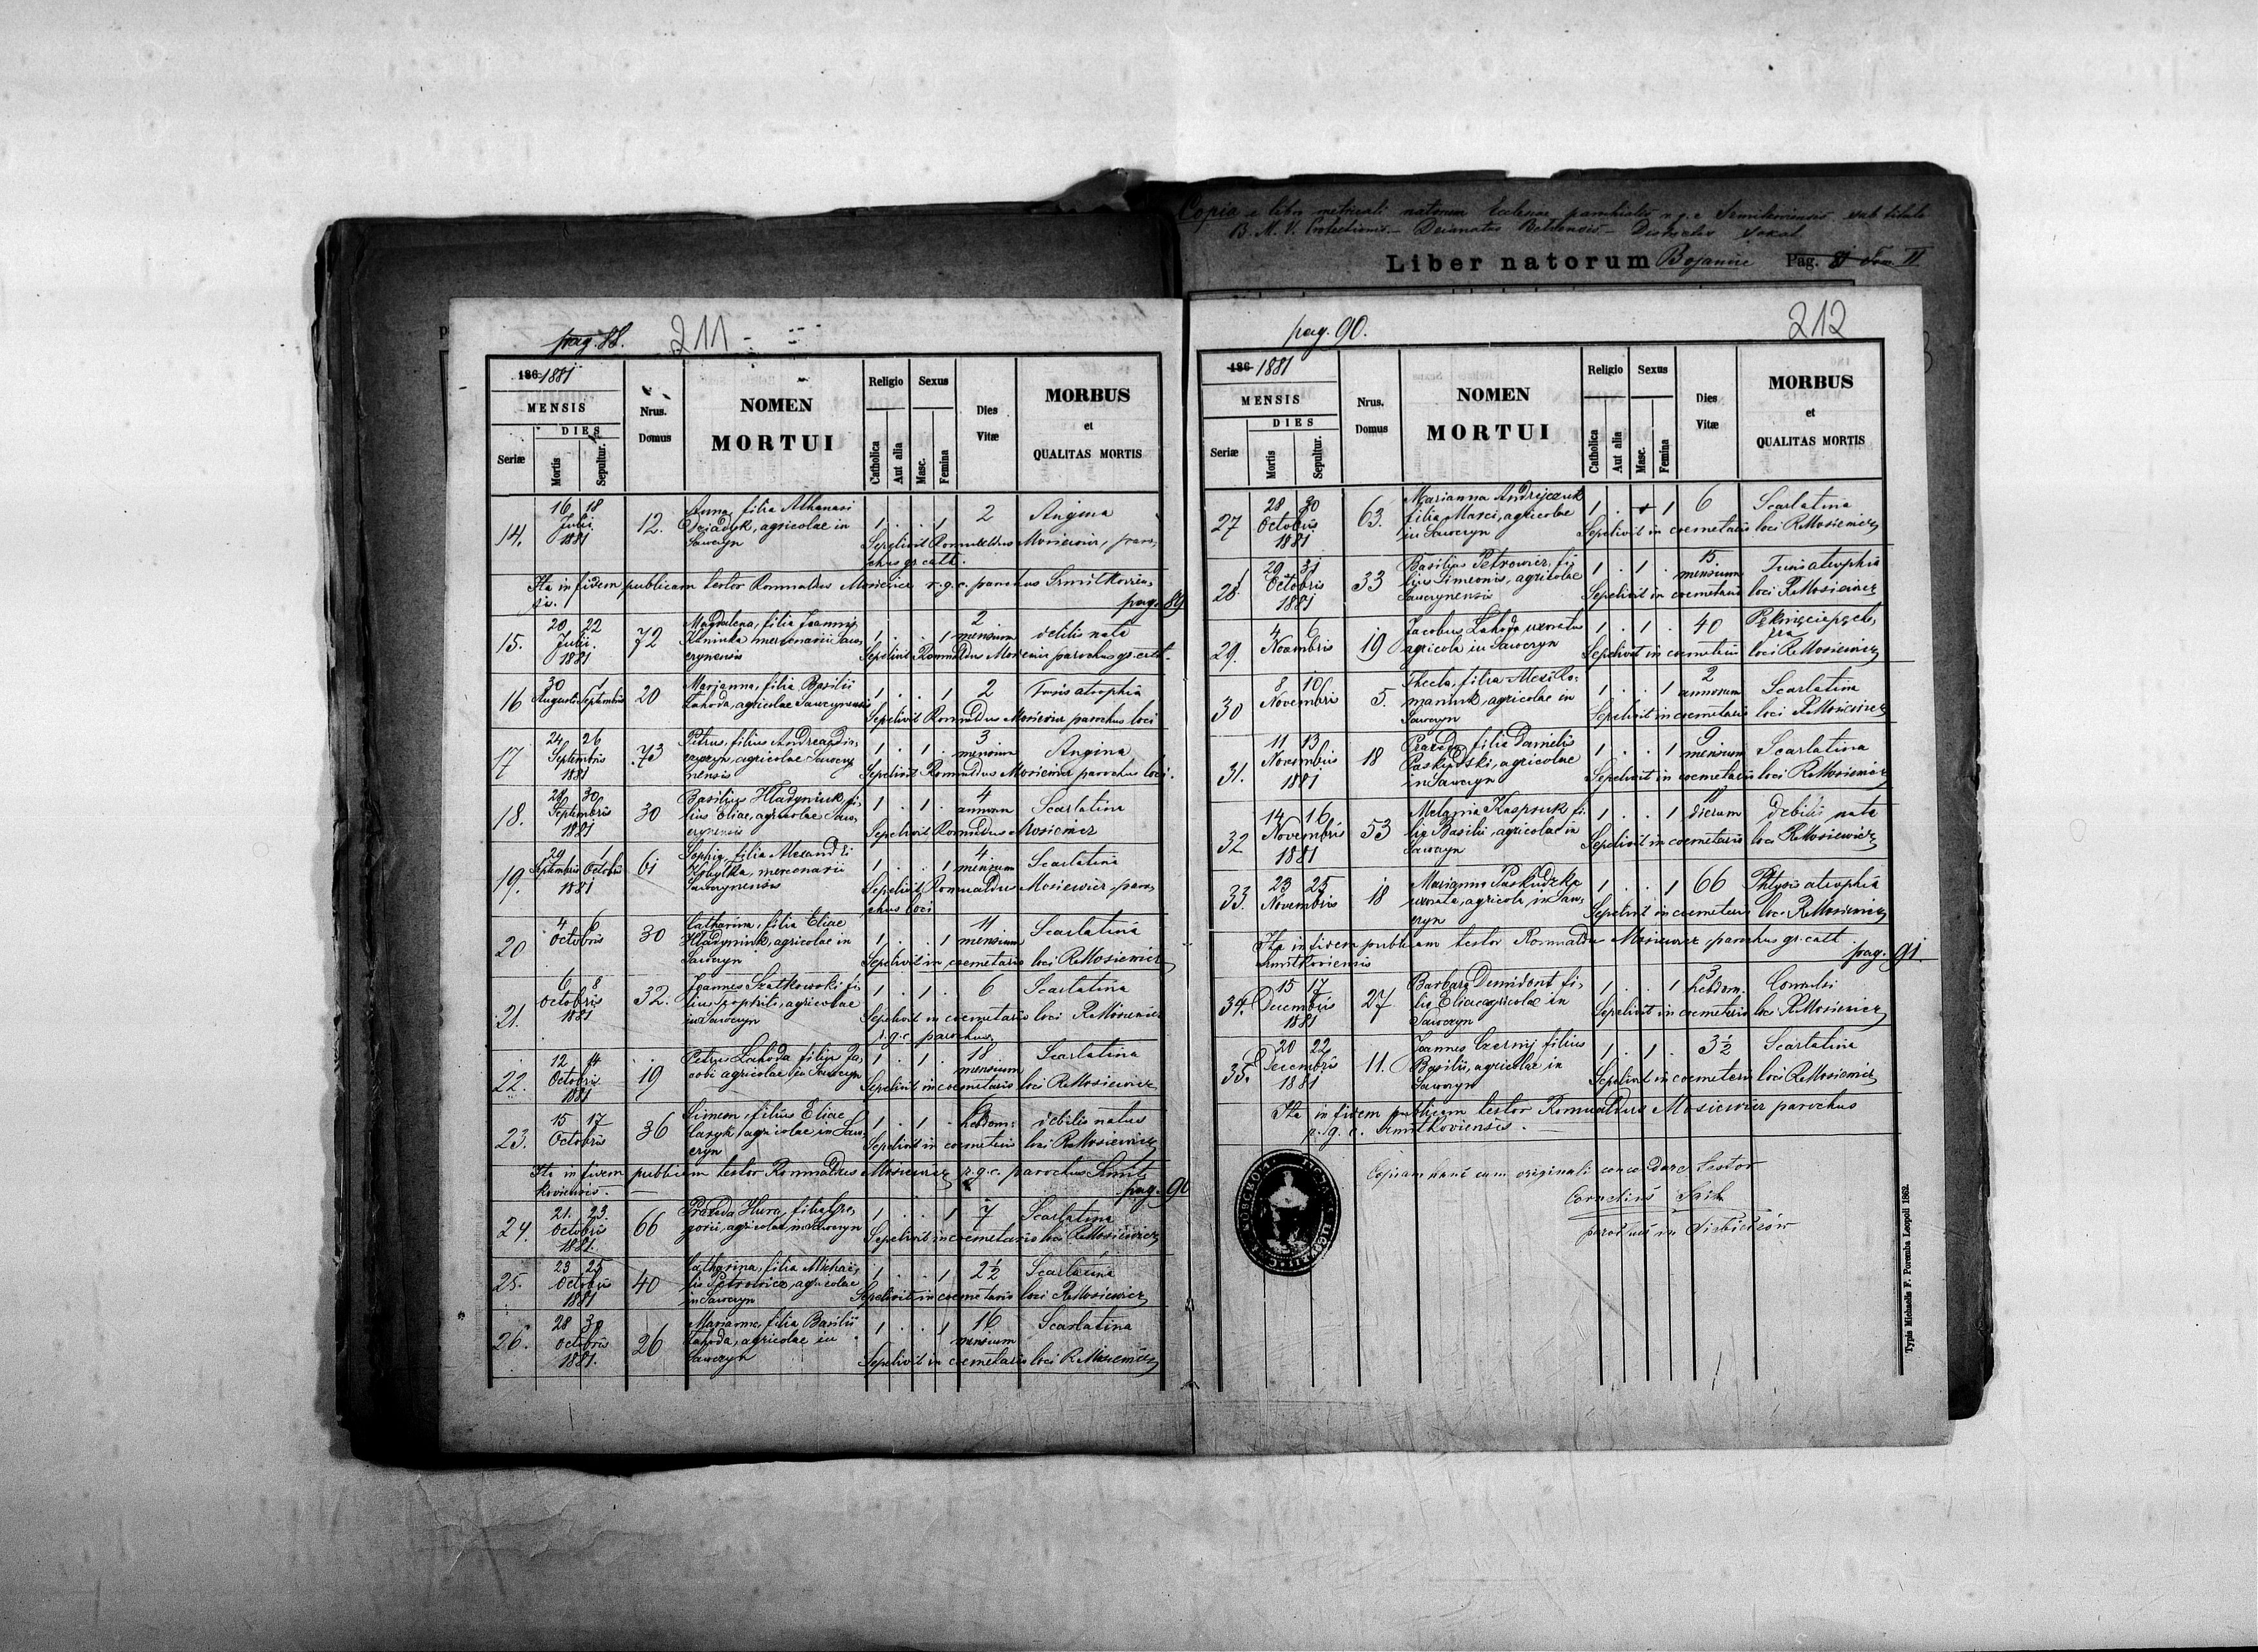 Copia e libro metricali natorum Ecclesiae parochialis r. g. c. sub titulo
B. M. V. Protectionis – Decanatus – Districtus Sokal
Liber natorum Bojanice Pag. II
pag. 88. 211
186 1881
MENSIS
DIES
Seriæ Mortis Sepultur.
Nrus. Domus
NOMEN
MORTUI
Religio Sexus
Catholica Aut alia Masc. Femina
Dies Vitæ
MORBUS
et
QUALITAS MORTIS
14. 16 18 Julii 1881 12. Anna, filia Athanasi
agricolae in
Sawczyn 1 . . 1 2 Angina
Sepelivit Romualdus Mosiewicz, paro-
chus gr. cath.
Ita in fidem publicam testor Romualdus Mosiewicz r. g. c. parochus Smitkovien-
sis. pag. 89
15. 20 22 Julii. 1881 72 Magdalena, filia Joannis
mercenarii Saw-
czynensis 1 . . 1 2 mensium debilis nata
Sepelivit Romualdus Mosiewicz parochus gr. cath.
16 30 Augusti 1 Septembris 20 Marjanna, filia Basilii
Lahoda, agricolae Sawczynensis 1 . . 1 2 Tusis atrophia
Sepelivit Romualdus Mosiewicz parochus loci
17 24 26 Septembris 1881 73 Petrus, filius Andreae
agricolae Sawczy-
nensis 1 . 1 . 3 mensium Angina
Sepelivit Romualdus Mosiewicz parochus loci.
18. 28 30 Septembris 1881 30 Basilius Hladyniuk, fi-
lius Eliae, agricolae Saw-
czynensis 1 . 1 . 4 annorum Scarlatina
Sepelivit Romualdus Mosiewicz
19. 29 Septembris 1 Octobris 1881 61 Sophia, filia Alexandri
Kobylka, mercenarii
Sawczynensis 1 . . 1 4 mensium Scarlatina
Sepelivit Romualdus Mosiewicz, paro-
chus loci
20 4 6 Octobris 30 Catharina, filia Eliae
Hladyniuk, agricolae in
Sawczyn 1 . . 1 11 mensium Scarlatina
Sepelivit in coemeterio loci R Mosiewicz
21. 6 8 Octobris 1881 32. Joannes Szatkowski fi-
lius agricolae
in Sawczyn 1 . 1 . 6 Scarlatina
Sepelivit in coemeterio loci R Mosiewicz
r. g. c. parochus
22. 12 14 Octobris 1881 19 Petrus Lahoda filius Ja-
cobi agricolae in Sawczyn 1 . 1 . 18 mensium Scarlatina
Sepelivit in coemeterio loci R Mosiewicz
23. 15 17 Octobris 36 Simeon, filius Eliae
agricolae in Saw-
czyn 1 . 1 . hebdom: debilis natus
Sepelivit in coemeterio loci R Mosiewicz
Ita in fidem publicam testor Romualdus Mosiewicz r. g. c. parochus Smit-
koviensis. pag. 90
24. 21. 23. Octobris 1881. 66 Praxeda Hura, filia Gre-
gorii, agricolae in Sawczyn 1 . . 1 7 Scarlatina
Sepelivit in coemeterio loci R Mosiewicz
25. 23 25 Octobris 1881 40 Catharina, filia Michae-
lis Petrowicz, agricolae
in Sawczyn 1 . . 1 2½ Scarlatina
Sepelivit in coemeterio loci R Mosiewicz
26. 28 30 Octobris 1881. 26 Marianna, filia Basilii
Lahoda, agricolae in
Sawczyn 1 . . 1 16 mensium Scarlatina
Sepelivit in coemeterio loci R Mosiewicz
pag. 90. 212
186 1881
MENSIS
DIES
Seriæ Mortis Sepultur.
Nrus. Domus
NOMEN
MORTUI
Religio Sexus
Catholica Aut alia Masc. Femina
Dies Vitæ
MORBUS
et
QUALITAS MORTIS
27 28 30 Octobris 1881 63. Marianna Andrejczuk
filia Marci, agricolae
in Sawczyn 1 . . 1 6 Scarlatina
Sepelivit in coemeterio loci R Mosiewicz
28. 29 31 Octobris 1881 33 Basilius Petrowicz, fi-
lius Simeonis, agricolae
Sawczynensis 1 . 1 . 15 mensium Tusis atrophia
Sepelivit in coemeterio loci R Mosiewicz
29. 4 6 Novembris 19 Jacobus Lahoda uxoratus
agricola in Sawczyn 1 . 1 . 40
Sepelivit in coemeterio loci R Mosiewicz
30 8 10 Novembris 5. Thecla, filia
agricolae in
Sawczyn 1 . . 1 2 annorum Scarlatina
Sepelivit in coemeterio loci R Mosiewicz
31. 11 13 Novembris 1881 18 Praxeda, filia Danielis
Paskudzki, agricolae
in Sawczyn 1 . . 1 9 mensium Scarlatina
Sepelivit in coemeterio loci R Mosiewicz
32 14 16 Novembris 1881 53 Melania Kaspruk fi-
lia Basilii, agricolae in
Sawczyn 1 . . 1 dierum debilis nata
Sepelivit in coemeterio loci R Mosiewicz
33. 23 25 Novembris 18 Marianna Paskudzka
uxorata, agricola, in Saw-
czyn 1 . . 1 66 Phtysis atrophia
Sepelivit in coemeterio loci R Mosiewicz
Ita in fidem publicam testor Romualdus Mosiewicz parochus gr. catt
Smitkoviensis pag. 91.
34. 15 17 Decembris 1881 27 Barbara Demidont fi-
lia Eliae agricolae in
Sawczyn 1 . . 1 3 hebdom. Convulsi
Sepelivit in coemeterio loci R Mosiewicz
35. 20 22 Decembris 1881 11. Joannes Czernij filius
Basilii, agricolae in
Sawczyn 1 . 1 . 3½ Scarlatina
Sepelivit in coemeterio loci R Mosiewicz
Ita in fidem publicam testor Romualdus Mosiewicz parochus
r. g. c. Smitkoviensis.
Copiam hanc cum originali concordare testor
Cornelius
parochus in
Typis Michaelis F. Poremba Leopoli 1862.